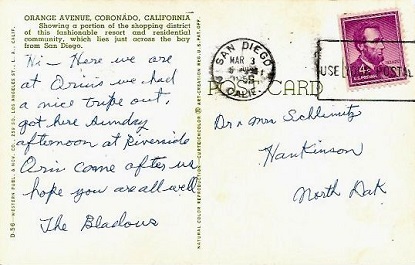 ORANGE AVENUE, CORONADO, CALIFORNIA
Showing a portion of the shopping district
of this fashionable resort and residential
community, which lies just across the bay
from San Diego.
Hi - Here we are
at Orin's we had
a nice tripe out,
got here Sunday
afternoon at Riverside
Orin came after us
hope you are all well
The Bladows
D-56 - WESTERN PUB. & NOV. CO.
NATURAL COLOR REPRODUCTION
SAN DIEGO
MAR 3
CALIF.
USE POSTAL
4¢
POST CARD
Dr & Mrs Schlemitz
Hankinson
North Dak